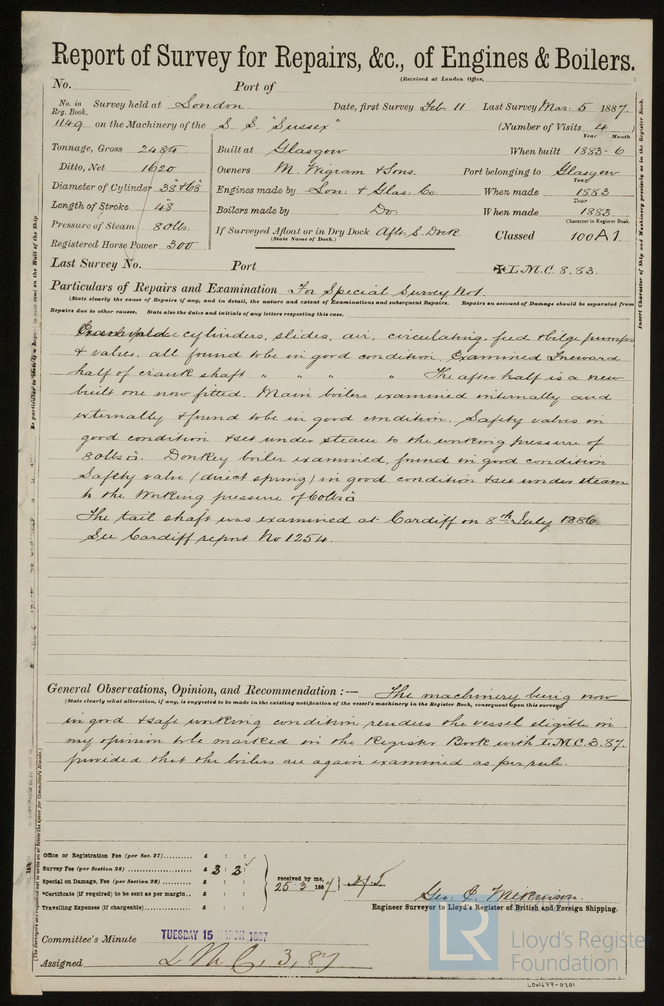 Report of Survey for Repairs, &c., of Engines & Boilers.
(Received at London Office,
No. Port of
No. in Reg. Book. Survey held at London Date, first Survey Feb 11 Last Survey Mar: 5 1887
1149 on the Machinery of the S. S. "Sussex" (Number of Visits 4
Year Month
Tonnage, Gross 2484 Built at Glasgow When built 1883-6
Ditto, Net 1620 Owners M. Wigram & Sons. Port belonging to Glasgow
Year
Diameter of Cylinder 38" & 68" Engines made by Lon: & Glas: Co. When made 1883
Year
Length of Stroke 48 Boilers made by Do. When made 1883
Character in Register Book.
Pressure of Steam 80 lbs. If Surveyed Afloat or in Dry Dock Aflt. S. Dock Classed 100A1
(State Name of Dock.)
Registered Horse Power 300
Last Survey No. Port ✠L.M.C. 8.83.
Particulars of Repairs and Examination For Special Survey No1.
(State clearly the cause of Repairs if any, and in detail, the nature and extent of Examinations and subsequent Repairs. Repairs on account of Damage should be separated from
Repairs due to other causes. State also the dates and initials of any letters respecting this case.
cylinders, slides, air, circulating, feed & bilge pumps
& valves. all found to be in good condition. Examined Forward
half of crank shaft " " " " The after half is a new
built one now fitted. Main boilers examined internally and
externally & found to be in good condition. Safety valves in
good condition & set under steam to the working pressure of
80lbs □. Donkey boiler examined, found in good condition
Safety valve (direct spring) in good condition & set under steam
to the working pressure of 60lbs □
The tail shaft was examined at Cardiff on 8th July 1886.
See Cardiff report No 1254.
General Observations, Opinion, and Recommendation :— The machinery being now
(State clearly what alteration, if any, is suggested to be made in the existing notification of the vessel's machinery in the Register Book, consequent upon this survey)
in good & safe working condition renders the vessel eligible in
my opinion to be marked in the Register Book with L.M.C. 3.87.
provided that the boilers are again examined as per rule.
Office or Registration Fee (per Sec. 27).......... £ : :
Survey Fee (per Section 28) .......... £ 3 : 3 :
Special on Damage, Fee (per Section 28) .......... £ : :
*Certificate (if required) to be sent as per margin.. £ : :
Travelling Expenses (if chargeable).......... £ : :
received by me,
25.3.1887
Engineer Surveyor to Lloyd's Register of British and Foreign Shipping.
Committee's Minute TUESDAY 15 MARCH 1887
Assigned L M C, 3, 87
LR Lloyd's Register Foundation
LON677-0201